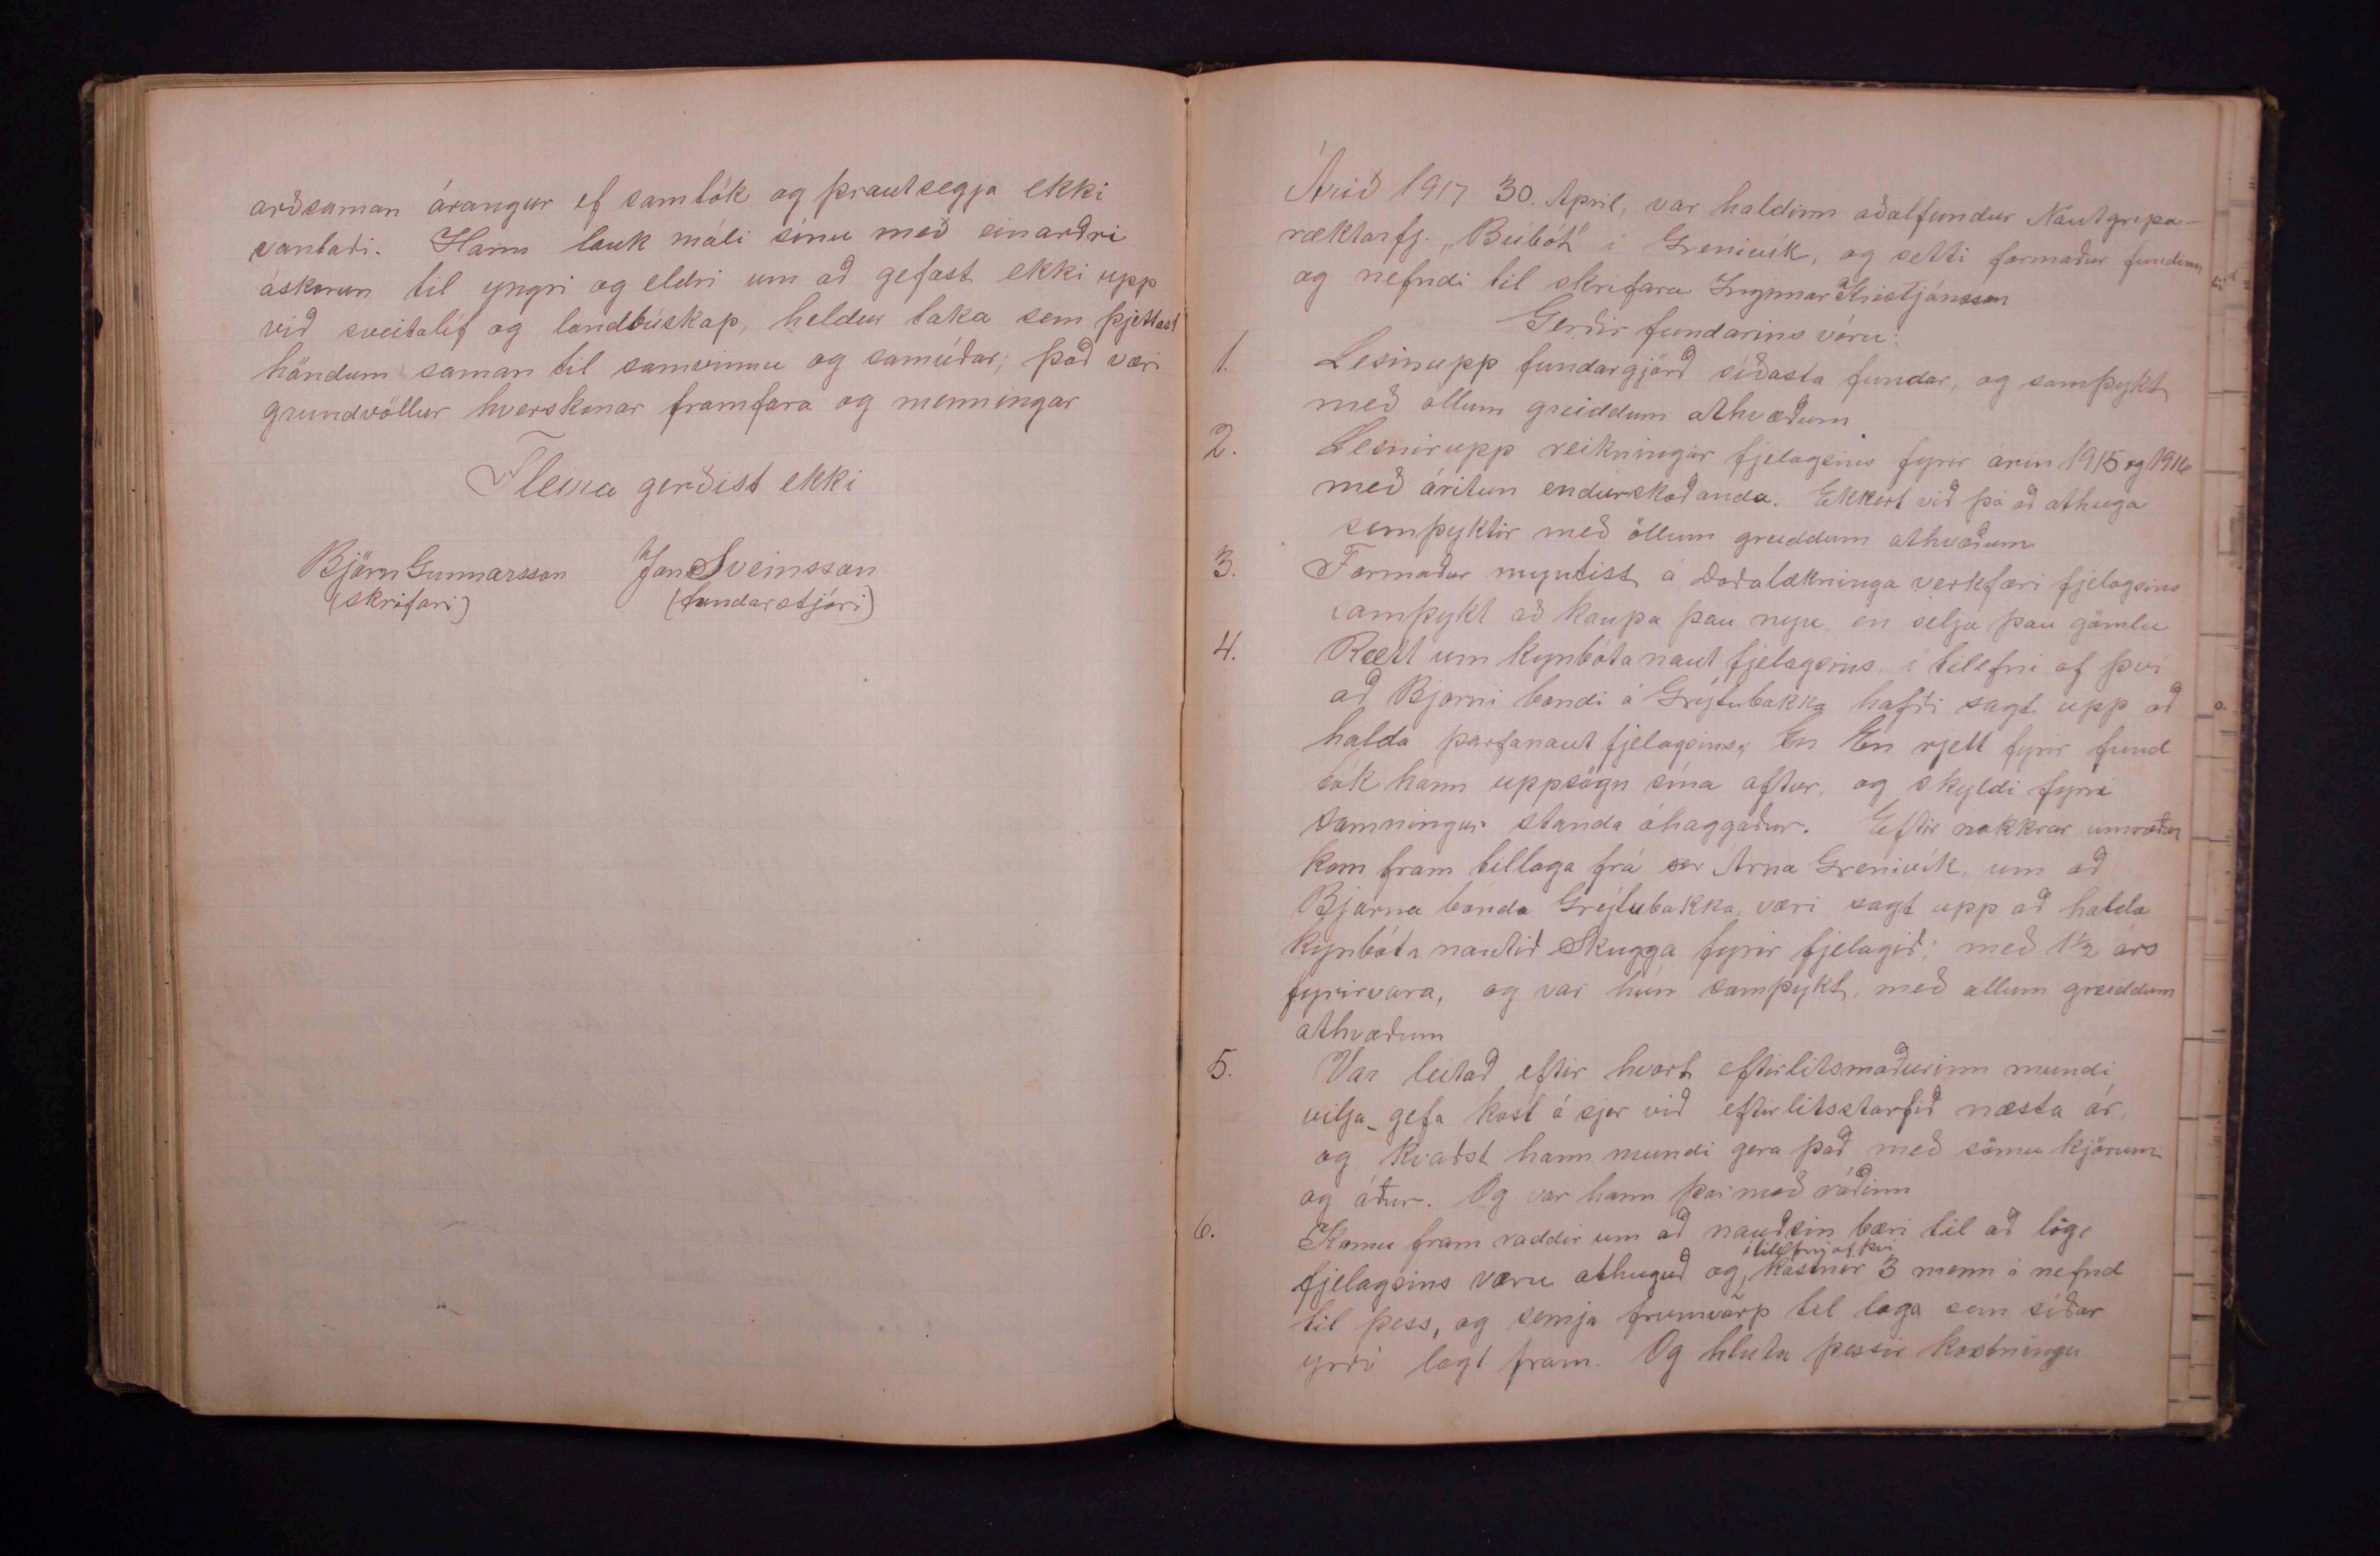 arðsaman árangur ef samtök og þrautsegja ekki
vantaði. Hann lauk máli sínu með einarðri
áskorun til yngri og eldri um að gefast ekki upp
við sveitalíf og landbúskap, heldur taka sem þjettast
höndum saman til samvinnu og samúðar; það væri
grundvöllur hverskonar framfara og menningar
Fleira gerðist ekki
Björn Gunnarsson Jón Sveinsson
(skrifari) (fundarstjóri)
Árið 1917 30. Apríl, var haldinn aðalfundur Nautgripa-
ræktarfj. „Búbót" í Grenivík, og setti formaður fundinn
og nefndi til skrifara Ingimar Kristjánsson
Gerðir fundarins vóru:
1. Lesinupp fundargjörð síðasta fundar, og samþykt
með öllum greiddum athvæðum
2. Lesnirupp reikningar fjelagsins fyrir árin 1915 og 1916
með áritun endurskoðanda. Ekkert við þá að athuga
samþyktir með öllum greiddum athvæðum
3. Formaður myntist á Doðalækninga verkfæri fjelagsins
samþykt að kaupa þau nyu, en selja þau gömlu
4. Rætt um kynbótanaut fjelagsins, í tilefni af því
að Bjarni bondi á Grýtubakka hafði sagt upp að
halda þarfanaut fjelagsins; En En rjett fyrir fund
tók hann uppsögn sína aftur, og skyldi fyrri
samningur standa óhaggaður. Eftir nokkrar umræður
kom fram tillaga frá ser Árna Grenivík, um að
Bjarna bónda Grýtubakka, væri sagt upp að halda
kynbóta nautið Skugga fyrir fjelagið; með 1½ árs
fyrirvara, og var hún samþykt, með öllum greiddum
athvæðum
5. Var leitað eftir hvort eftirlitsmaðurinn mundi
vilja gefa kost á sjer við eftirlitsstarfið næsta ár,
og kvaðst hann mundi gera það með sömu kjörum
og áður. Og var hann þar með ráðinn
6. Komu fram raddir um að nauðsin bæri til að lög
í tilefni af því
fjelagsins væru athuguð og, kosnir 3 menn í nefnd
til þess, og semja frumvarp til laga sem síðar
yrði lagt fram. Og hlutu þessir kosningu